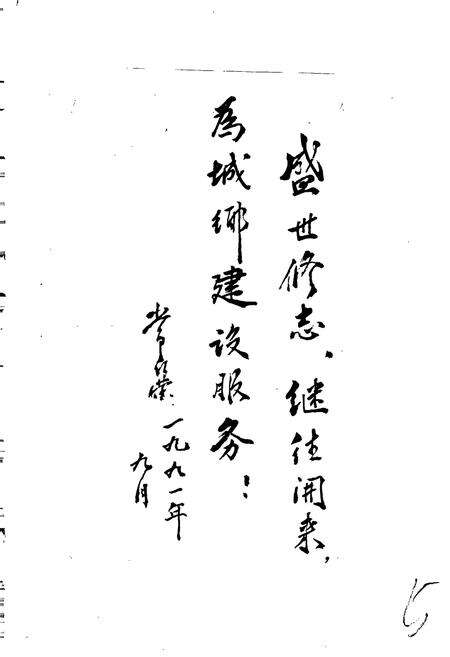 盛世修志、继往开来，
为城乡建设服务！
一九九一年
九月